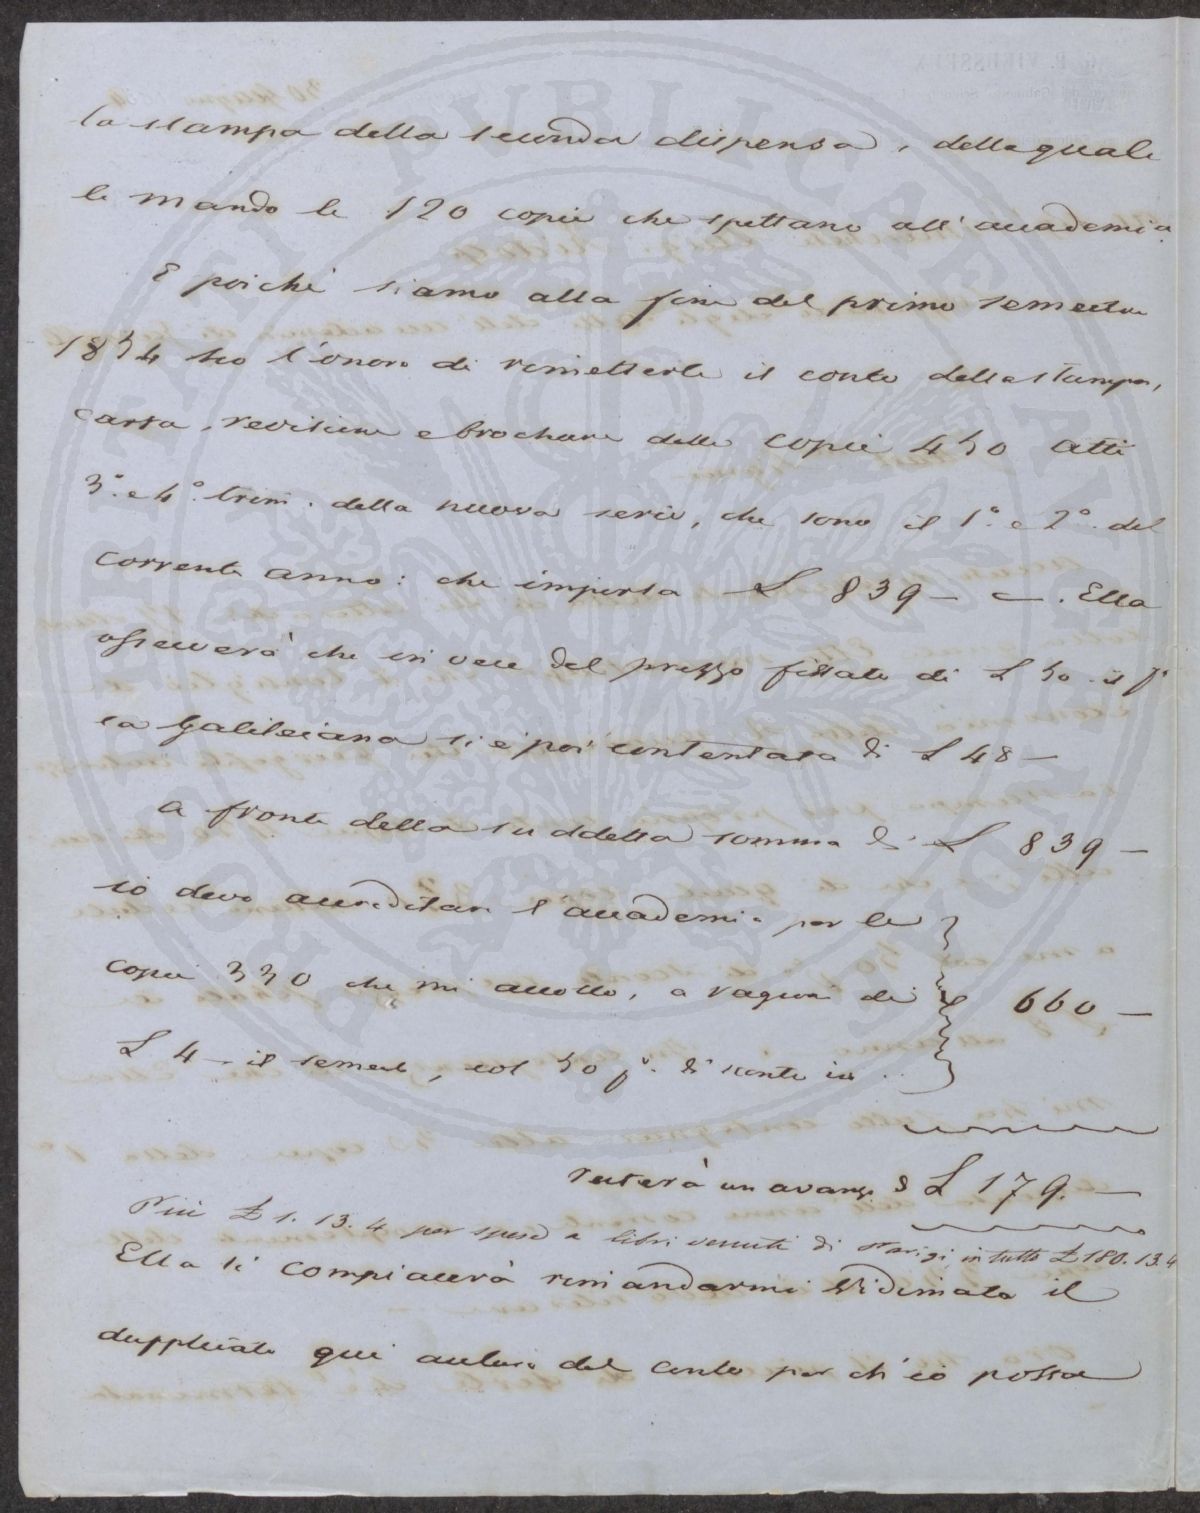 la stampa della seconda dispensa, della quale
le mando le 120 copie che spettano all'accademia.
E poichè siamo alla fine del primo semestre
1854 ho l'onore di rimetterle il conto della stampa,
carta, revisione e brochure delle copie 450 Atti
3.° e 4.° trim. della nuova serie, che sono il 1.° e 2.° del
corrente anno: che importa £ 839 — —. Ella
osserverà che in vece del prezzo fissato di £ 50 il f.°
la Galileiana si è poi contentata di £ 48 —
A fronte della suddetta somma di £ 839 —
io devo accreditare l'accademia per le
copie 330 che mi accollo, a ragione di £ 660 —
£ 4 — il semest., col 50 p.% di sconto in ..
resterà un avanzo di £ 179. —
Più £ 1. 13. 4 per spese a libri venuti di Parigi, in tutto £ 180. 13. 4
Ella si compiacerà rimandarmi vidimato il
dupplicato qui accluso del conto per ch'io possa
PUBLICAE